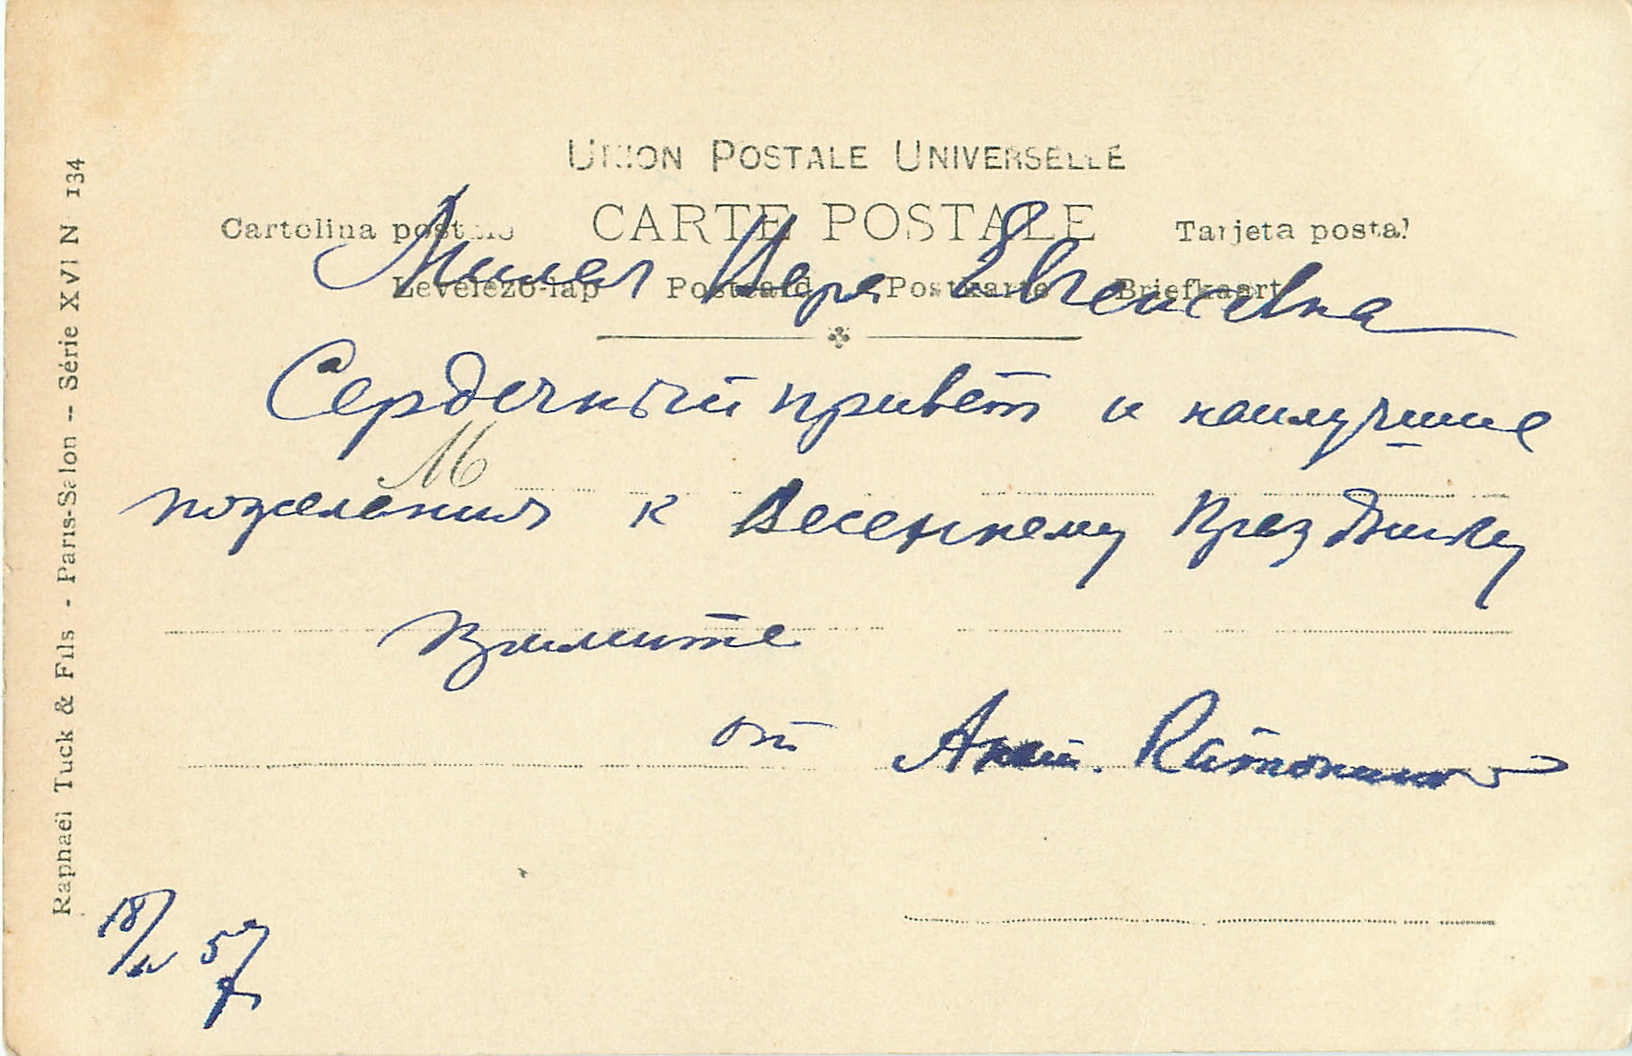 UNION POSTALE UNIVERSELLE
CARTE POSTALE
Cartolina postale
Tarjeta postal
Levelező-lap Postcard Postkarte Briefkaart
Милая Вера Евгеневна
Сердечный привет и наилучшие
M
пожелания к Весеннему Празднику
примите
от
18/IV 57
Raphaël Tuck & Fils - Paris-Salon -- Série XVI N 134